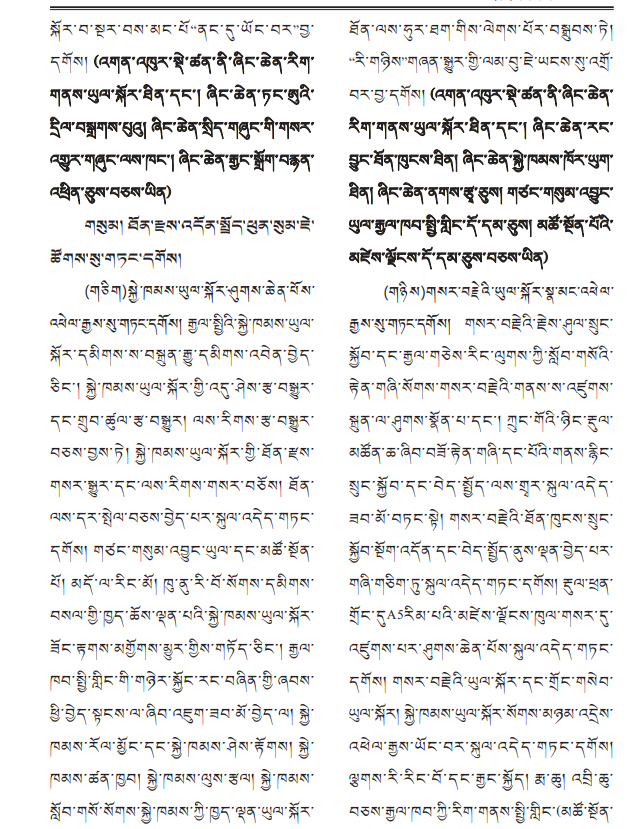 སྐོར་བ་སྔར་བས་མང་པོ“ནང་དུ་ཡོང་བར”བྱ་
དགོས། (འགན་འཁུར་སྡེ་ཚན་ནི་ཞིང་ཆེན་རིག་
གནས་ཡུལ་སྐོར་ཐིན་དང་། ཞིང་ཆེན་ཏང་ཨུའི་
དྲིལ་བསྒྲགས་པུའུ། ཞིང་ཆེན་སྲིད་གཞུང་གི་གསར་
འགྱུར་གཞུང་ལས་ཁང་། ཞིང་ཆེན་རྒྱང་སྒྲོག་བརྙན་
འཕྲིན་ཅུས་བཅས་ཡིན)
གསུམ། ཐོན་རྫས་འདོན་སྤྲོད་ཕུན་སུམ་ཇེ་
ཚོགས་སུ་གཏང་དགོས།
(གཅིག)སྐྱེ་ཁམས་ཡུལ་སྐོར་ཤུགས་ཆེན་པོས་
འཕེལ་རྒྱས་སུ་གཏང་དགོས། རྒྱལ་སྤྱིའི་སྐྱེ་ཁམས་ཡུལ་
སྐོར་དམིགས་ས་བསྐྲུན་རྒྱུ་དམིགས་འབེན་བྱེད་
ཅིང་། སྐྱེ་ཁམས་ཡུལ་སྐོར་གྱི་འདུ་ཤེས་རྩ་བསྒྱུར་
དང་གྲུབ་ཚུལ་རྩ་བསྒྱུར། ལས་རིགས་རྩ་བསྒྱུར་
བཅས་བྱས་ཏེ། སྐྱེ་ཁམས་ཡུལ་སྐོར་གྱི་ཐོན་རྫས་
གསར་སྒྱུར་དང་ལས་རིགས་གསར་བཅོས། ཐོན་
ལས་དར་སྤེལ་བཅས་བྱེད་པར་སྐུལ་འདེད་གཏང་
དགོས། གཙང་གསུམ་འབྱུང་ཡུལ་དང་མཚོ་སྔོན་
པོ། མདོ་ལ་རིང་མོ། ཁུ་ནུ་རི་བོ་སོགས་དམིགས་
བསལ་གྱི་ཁྱད་ཆོས་ལྡན་པའི་སྐྱེ་ཁམས་ཡུལ་སྐོར་
ཟོང་རྟགས་མགྱོགས་མྱུར་གྱིས་གཏོད་ཅིང་། རྒྱལ་
ཁབ་སྤྱི་གླིང་གི་གཉེར་སྐྱོང་རང་བཞིན་གྱི་ཞབས་
ཕྱི་བྱེད་སྟངས་ལ་ཞིབ་འཇུག་ཟབ་མོ་བྱེད་ལ། སྐྱེ་
ཁམས་རོལ་མྱོང་དང་སྐྱེ་ཁམས་ཤེས་རྟོགས། སྐྱེ་
ཁམས་ཚན་ཁྱབ། སྐྱེ་ཁམས་ལུས་རྩལ། སྐྱེ་ཁམས་
སློབ་གསོ་སོགས་སྐྱེ་ཁམས་ཀྱི་ཁྱད་ལྡན་ཡུལ་སྐོར་
ཐོན་ལས་ཧུར་ཐག་གིས་ལེགས་པོར་བསྒྲུབས་ཏེ།
“རི་གཉིས”གཞན་སྒྱུར་གྱི་ལམ་བུ་ཇེ་ཡངས་སུ་འགྲོ་
བར་བྱ་དགོས། (འགན་འཁུར་སྡེ་ཚན་ནི་ཞིང་ཆེན་
རིག་གནས་ཡུལ་སྐོར་ཐིན་དང་། ཞིང་ཆེན་རང་
བྱུང་ཐོན་ཁུངས་ཐིན། ཞིང་ཆེན་སྐྱེ་ཁམས་ཁོར་ཡུག་
ཐིན། ཞིང་ཆེན་ནགས་རྩྭ་ཅུས། གཙང་གསུམ་འབྱུང་
ཡུལ་རྒྱལ་ཁབ་སྤྱི་གླིང་དོ་དམ་ཅུས། མཚོ་སྔོན་པོའི་
མཛེས་ལྗོངས་དོ་དམ་ཅུས་བཅས་ཡིན)
(གཉིས)གསར་བརྗེའི་ཡུལ་སྐོར་སྣ་མང་འཕེལ་
རྒྱས་སུ་གཏང་དགོས། གསར་བརྗེའི་རྗེས་ཤུལ་སྲུང་
སྐྱོབ་དང་རྒྱལ་གཅེས་རིང་ལུགས་ཀྱི་སློབ་གསོའི་
རྟེན་གཞི་སོགས་གསར་བརྗེའི་གནས་ས་འཛུགས་
སྐྲུན་ལ་ཤུགས་སྣོན་པ་དང་། ཀྲུང་གོའི་ཉིང་རྡུལ་
མཚོན་ཆ་ཞིབ་བཟོ་རྟེན་གཞི་དང་པོའི་གནས་རྙིང་
སྲུང་སྐྱོབ་དང་བེད་སྤྱོད་ལས་གྲྭར་སྐུལ་འདེད་
ཟབ་མོ་བཏང་སྟེ། གསར་བརྗེའི་ཐོན་ཁུངས་སྲུང་
སྐྱོབ་སྔོག་འདོན་དང་བེད་སྤྱོད་ནུས་ལྡན་བྱེད་པར་
གཞི་གཅིག་ཏུ་སྐུལ་འདེད་གཏང་དགོས། རྡུལ་ཕྲན་
གྲོང་དུA5རིམ་པའི་མཛེས་ལྗོངས་ཁུལ་གསར་དུ་
འཛུགས་པར་ཤུགས་ཆེན་པོས་སྐུལ་འདེད་གཏང་
དགོས། གསར་བརྗེའི་ཡུལ་སྐོར་དང་གྲོང་གསེབ་
ཡུལ་སྐོར། སྐྱེ་ཁམས་ཡུལ་སྐོར་སོགས་མཉམ་འདྲེས་
འཕེལ་རྒྱས་ཡོང་བར་སྐུལ་འདེད་གཏང་དགོས།
ལྕགས་རི་རིང་བོ་དང་རྒྱང་སྐྱོད། རྨ་ཆུ། འབྲི་ཆུ་
བཅས་རྒྱལ་ཁབ་ཀྱི་རིག་གནས་སྤྱི་གླིང་(མཚོ་སྔོན་